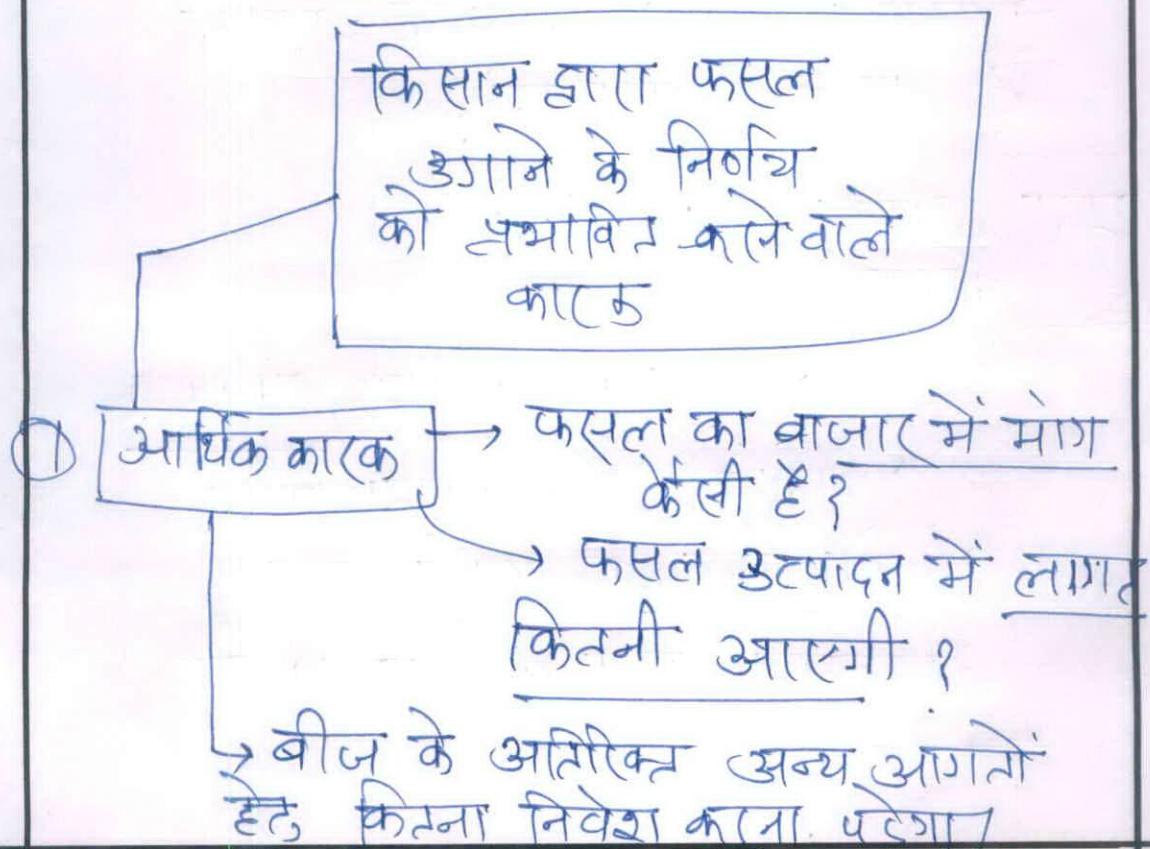 किसान द्वारा फसल
उगाने के निर्णय
को प्रभावित करने वाले
कारक
① आर्थिक कारक → फसल का बाजार में मांग
कैसी है?
→ फसल उत्पादन में लागत
कितनी आएगी ?
→ बीज के अतिरिक्त अन्य आगतों
हेतु कितना निवेश करना पडेगा।